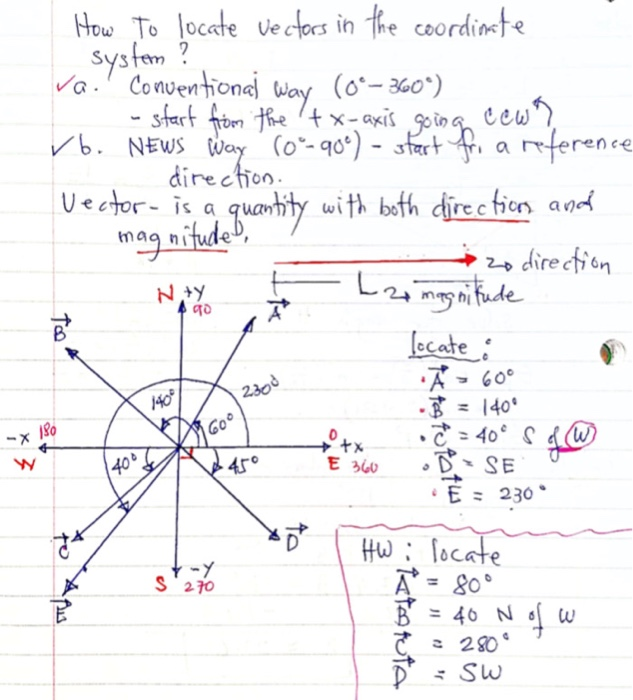 How To locate vectors in the coordinate
system?
✓a. Conventional way (0°-360°)
- start from the +x-axis going ccw
✓b. NEWS Way (0°-90°) - start fr. a reference
direction.
Vector- is a quantity with both direction and
magnitude.
direction
magnitude
N +Y
90
A
B
140°
230°
60°
-x 180
W
40°
45°
0
+x
E 360
C
D
E
-Y
S 270
locate:
• A = 60°
• B = 140°
• C = 40° S of W
• D = SE
• E = 230°
HW: locate
A = 80°
B = 40 N of W
C = 280°
D = SW